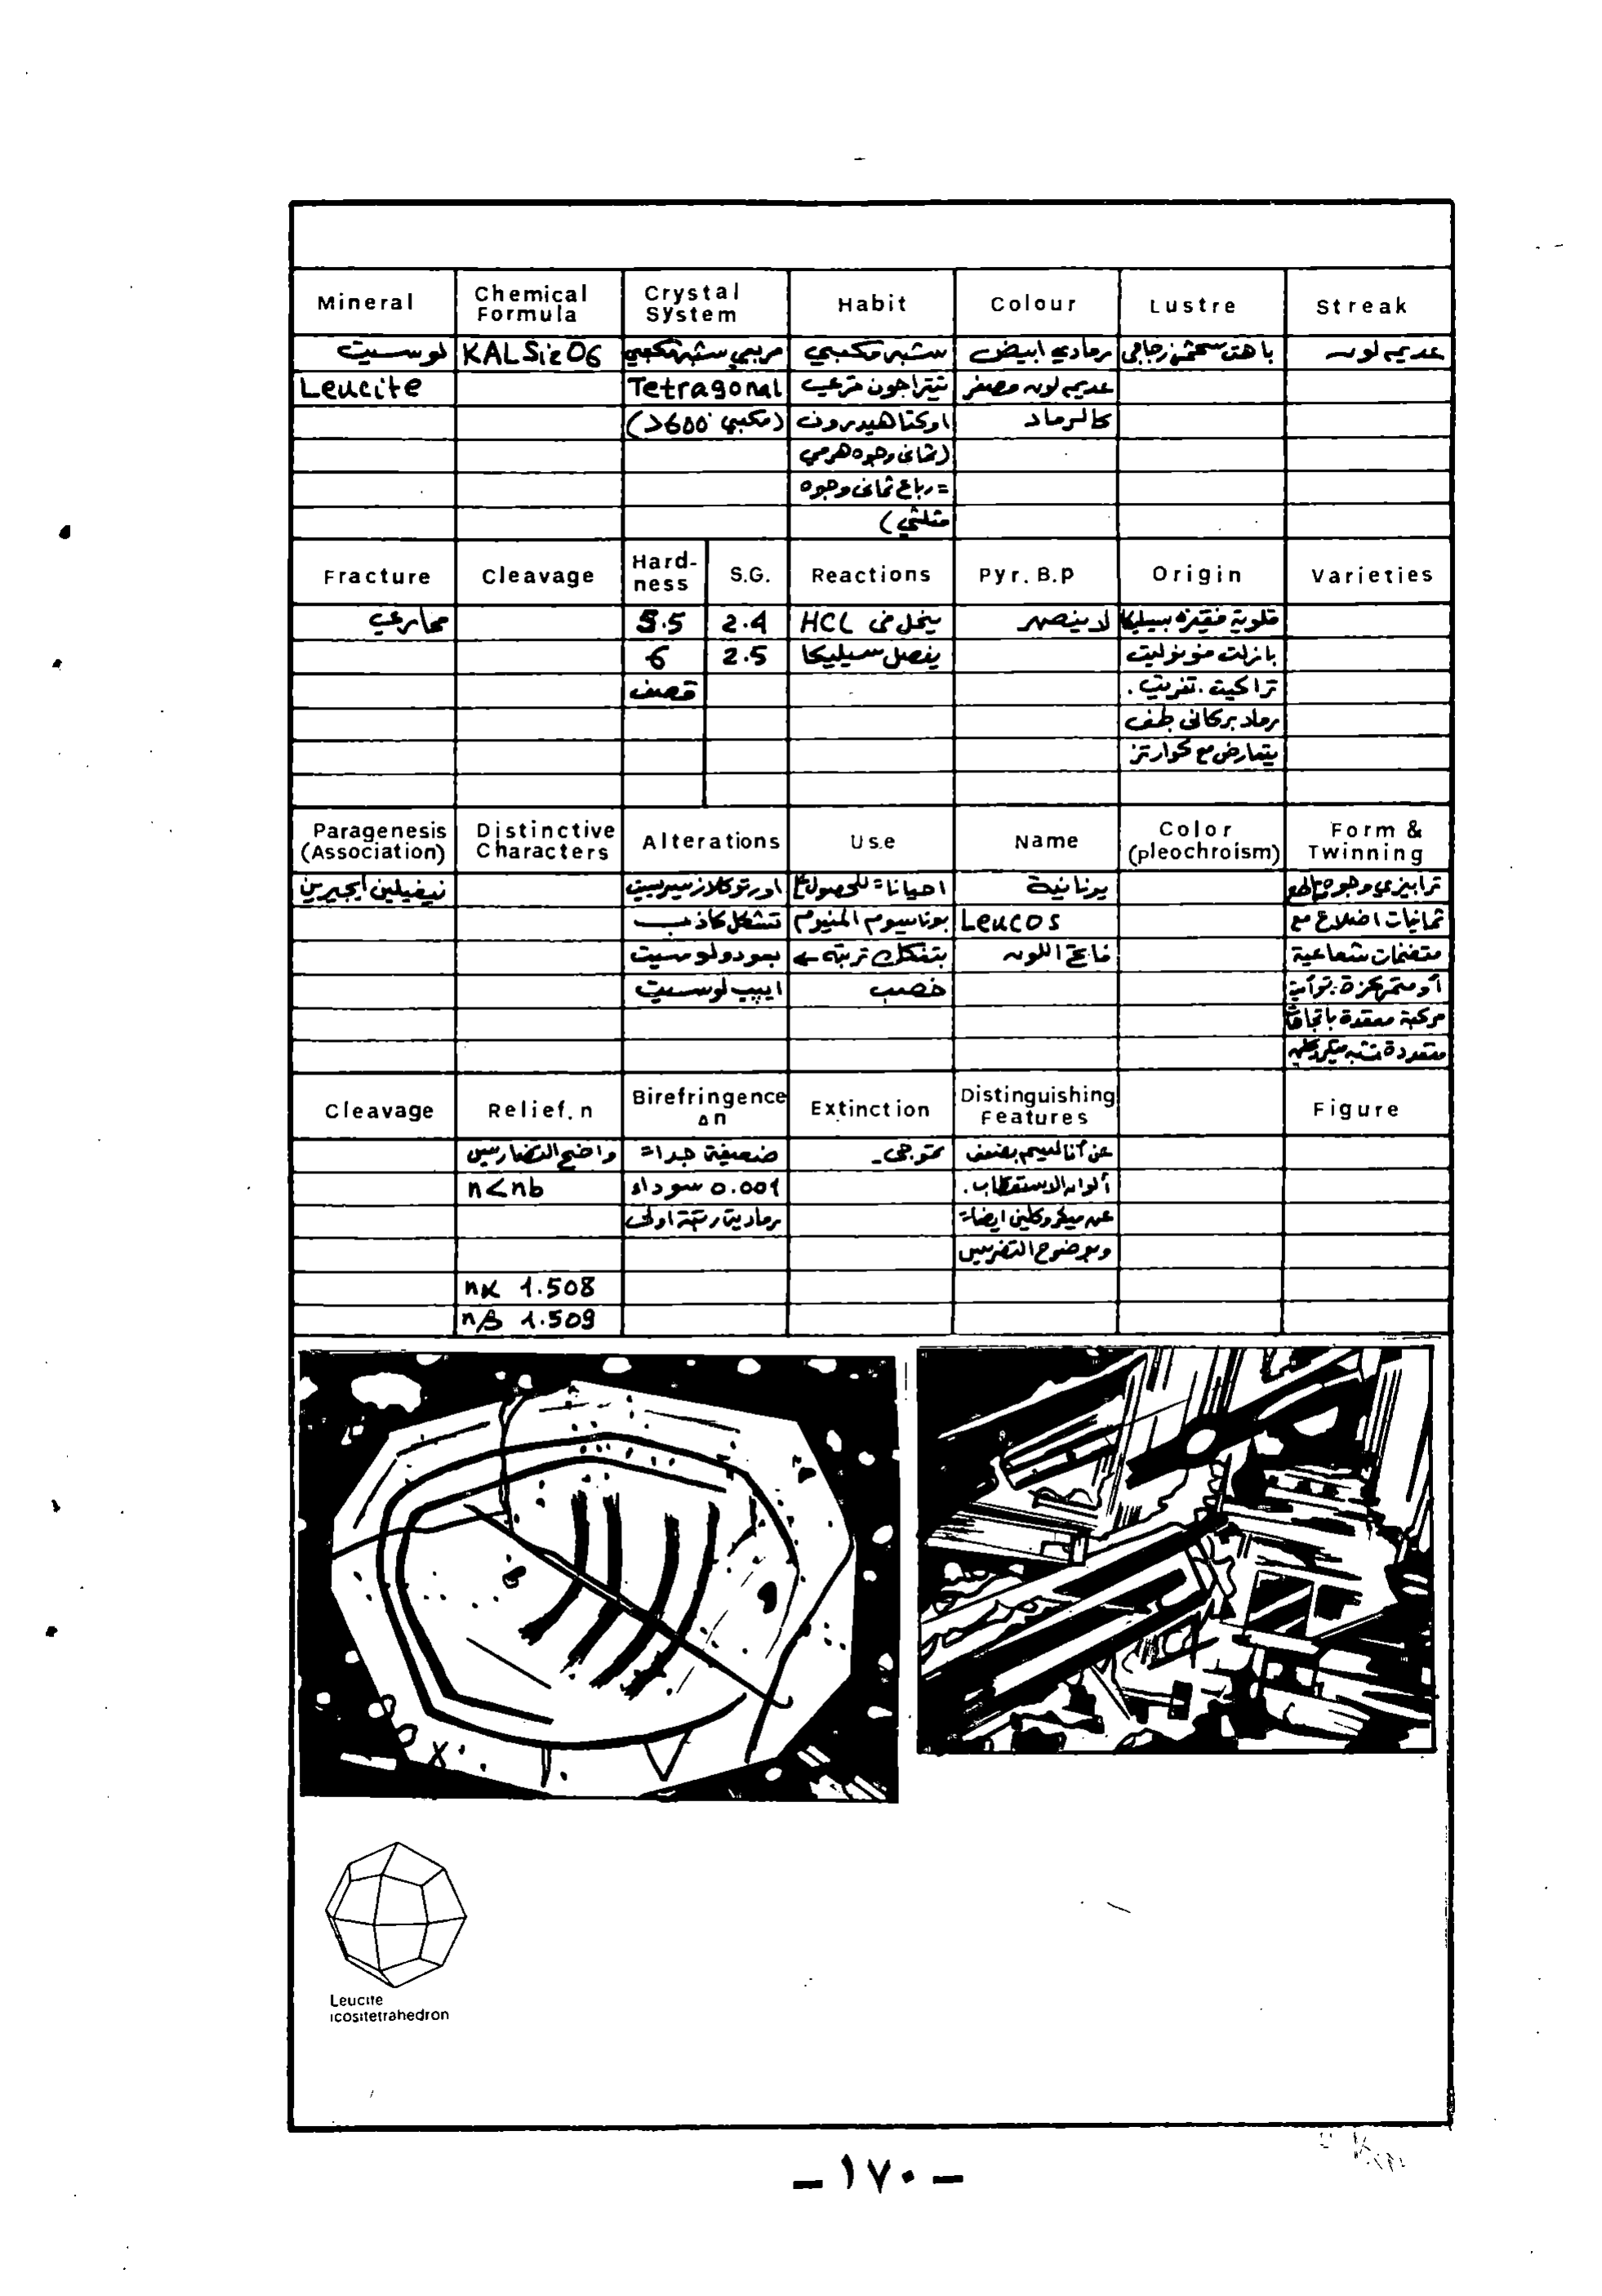 Mineral Chemical Formula Crystal System Habit Colour Lustre Streak
لوسيت KALSi2O6 مربعي شبه مكعبي شبه مكعبي رمادي ابيض باهت زجاجي عديم لون
Leucite Tetragonal تتراجون عديم لون مصفر
(مكعبي 600°<) اوكتاهيدرون كالرماد
(ثماني وجوه هرمي
= رباع ثماني وجوه
مثلثي)
Fracture Cleavage Hard-ness S.G. Reactions Pyr. B.p Origin Varieties
محاري 5.5 2.4 ينحل في HCL لا ينصهر قلوية فقيرة بسيليكا
6 2.5 يفصل سيليكا بازلت فونوليت
قصف تراكيت .تفريت .
رماد بركاني طف
يتعارض مع كوارتز
Paragenesis (Association) Distinctive Characters Alterations Use Name Color (pleochroism) Form & Twinning
نيفيلين ايجيرين اورتوكلاز سيرسيت احيانا للحصول يونانية ترابيزي وجوه
تشكل كاذب بوتاسيوم المنيوم Leucos ثمانيات اضلاع مع
بسودولوسيت بتفكك تربة ← فاتح اللون متضمنات شعاعية
ايبي لوسيت خصب أو متمركزة .توأمية
مركبة معقدة باتجاهات
متعددة تشبه ميكروكلين
Cleavage Relief. n Birefringence Δn Extinction Distinguishing Features Figure
واضح التضاريس ضعيفة جدا تموجي عن أنالسيم بضعف
n<nb 0.001 سوداء ألوان الاستقطاب .
رمادية رتبة اولى عن ميكروكلين ايضا
وبوضوح التضريس
nα 1.508
nβ 1.509
Leucite
icositetrahedron
- ١٧٠ -